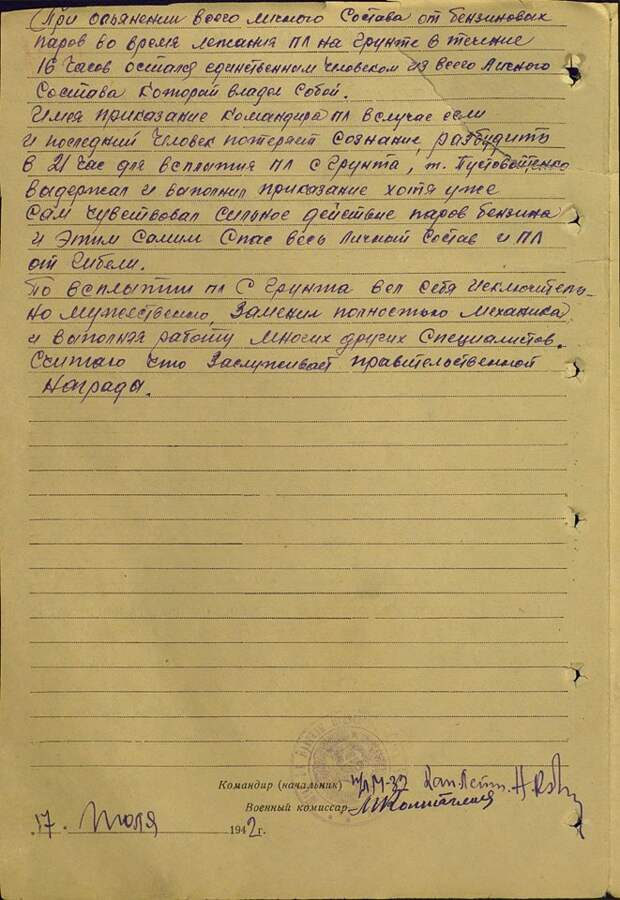 При опьянении всего личного состава от бензиновых
паров во время лежания ПЛ на грунте в течение
16 часов остался единственным человеком из всего личного
состава которай владел собой.
Имея приказание командира ПЛ в случае если
и последний человек потеряет сознание, разбудить
в 21 час для всплытия ПЛ с грунта, т. Пустовойтенко
выдержал и выполнил приказание хотя уже
сам чувствовал сильное действие паров бензина
и этим самим спас весь личный состав и ПЛ
от гибели.
По всплытии ПЛ с грунта вел себя исключитель-
но мужественно, заменил полностью механика
и выполняя работу многих других специалистов.
Считаю что заслуживает правительственной
награды.
Командир (начальник) п/л М-32 кап.лейт.
Военный комиссар
17. Июля 1942 г.